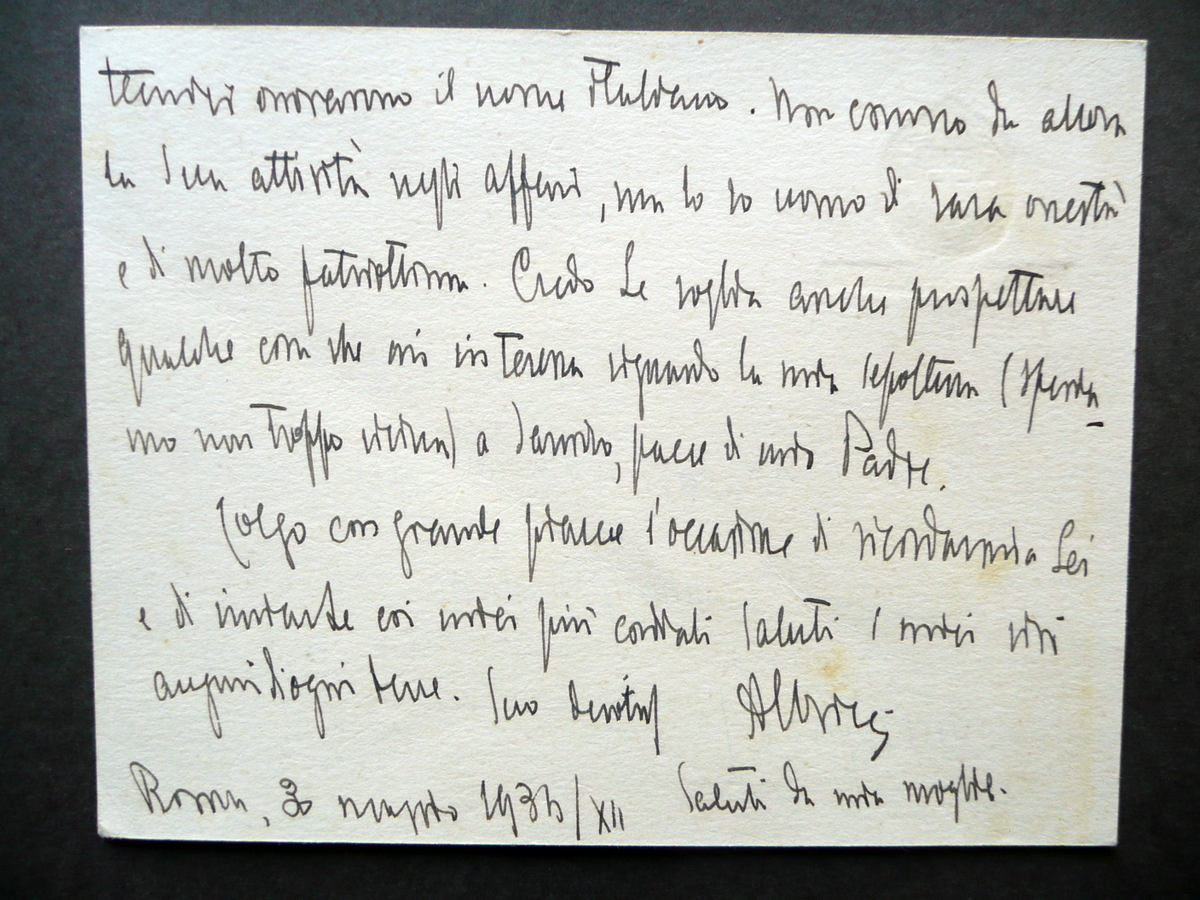 onoravano il nome italiano. Non conosco da allora
la Sua attività negli affari, ma lo so uomo di rara onestà
e di molto patriottismo. Credo Le voglia anche prospettare
qualche cosa che mi interessa riguardo la mia sepoltura (speria-
mo non troppo vicina) a paese di mio Padre.
Colgo con grande piacere l'occasione di ricordarmi a Lei
e di inviarLe coi miei più cordiali saluti i miei vivi
auguri di ogni bene. Suo
Roma, 30 maggio 1934/XII Saluti da mia moglie.